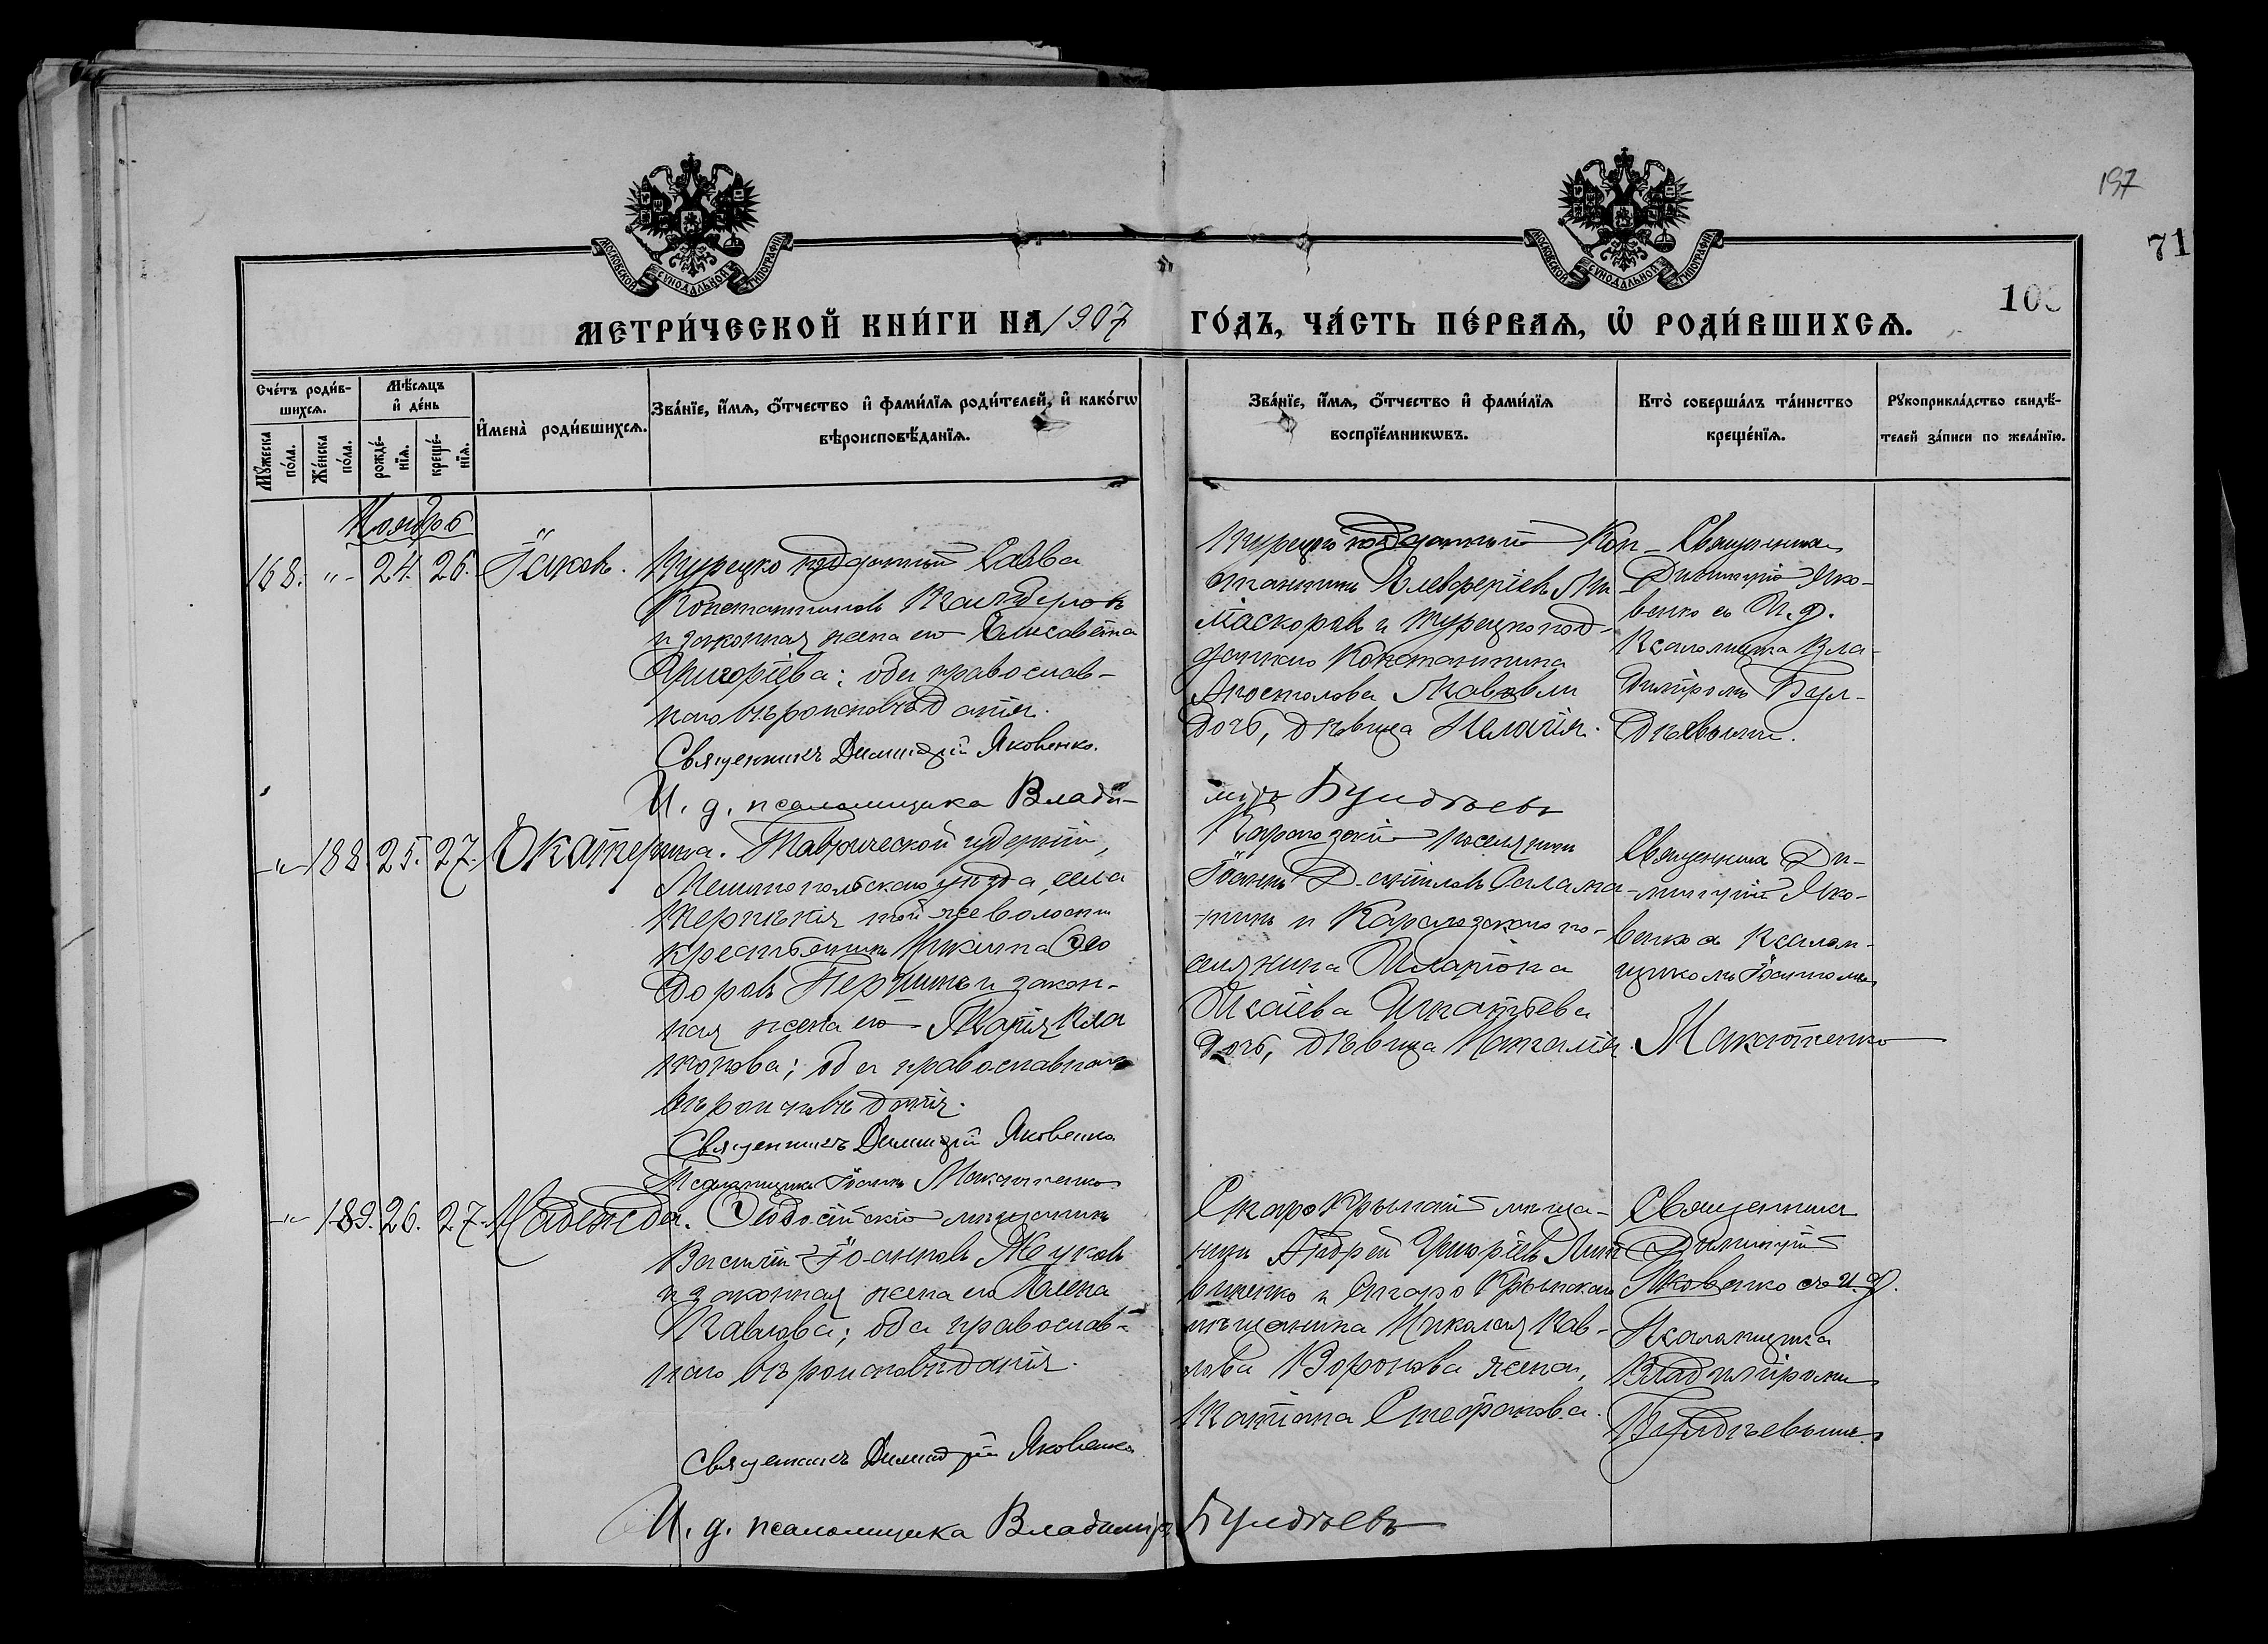 197
71
МОСКОВСКОЙ СѴНОДАЛЬНОЙ ТИПОГРАФІИ
МОСКОВСКОЙ СѴНОДАЛЬНОЙ ТИПОГРАФІИ
10
МЕТРИ́ЧЕСКОЙ КНИ́ГИ НА 1907 ГО́ДЪ, ЧА́СТЬ ПЕ́РВАѦ, Ѡ҆ РОДИ́ВШИХСѦ.
Сче́тъ роди́в-
шихсѧ.
Мꙋ́жеска
по́ла.
Же́нска
по́ла.
Мѣ́сѧцъ
и҆ де́нь
рожде́-
нїѧ.
креще́-
нїѧ.
И҆мена̀ роди́вшихсѧ.
Зва́нїе, и҆́мѧ, ѻ҆́тчество и҆ фами́лїѧ роди́телей, и҆ како́гѡ
вѣроисповѣ́данїѧ.
Зва́нїе, и҆́мѧ, ѻ҆́тчество и҆ фами́лїѧ
воспрїе́мникѡвъ.
Кто̀ соверша́лъ та́инство
креще́нїѧ.
Рꙋкоприкла́дство свидѣ́-
телей за́писи по жела́нїю.
Ноябрь
168. "- 24. 26. Іаковъ.
Турецко подданный Савва
Константиновъ
и законная жена его Елисавета
Григоріева; оба православ-
наго вѣроисповѣданія.
Священникъ Димитрій Яковенко.
И. д. псаломщика Влади-
міръ Булдѣевъ
Турецко подданный Кон-
стантинъ Елевферіевъ
и турецкопод-
даннаго Константина
Апостолова
дочь, дѣвица Пелагія.
Священникъ
Димитрій Яко-
венко съ И. д.
Псаломщика Вла-
диміромъ Бул-
дѣевымъ.
-"- 188. 25. 27. Екатерина.
Таврической губерніи,
Мелитопольскаго уѣзда, села
Терпѣнія той же волости
крестьянинъ Никита Ѳео
доровъ и закон-
ная жена его Марія
оба православнаго
вѣроисповѣданія.
Священникъ Димитрій Яковенко
Псаломщикъ Іоаннъ Макатненко
поселянинъ
Іоаннъ
и по-
селянина Иларіона
Исаіева Игнатьева
дочь, дѣвица Наталія.
Священникъ Ди-
митрій Яко-
венко съ Псалом-
щикомъ Іоанномъ
Макатненко
-"- 189. 26. 27. Надежда.
Ѳеодосійскій мѣщанинъ
Василій Іоанновъ Жуковъ
и законная жена его Елена
Павлова; оба православ-
наго вѣроисповѣданія.
Священникъ Димитрій Яковенко
И. д. псаломщика Владиміръ Булдѣевъ
Старо Крымскій мѣща-
нинъ Андрей Григоріевъ Лит
виненко и Старо Крымскаго
мѣщанина Николая Пав-
лова Воронова жена,
Татіана Стефанова.
Священникъ
Димитрій
Яковенко съ И. д.
Псаломщика
Владиміромъ
Булдѣевымъ.